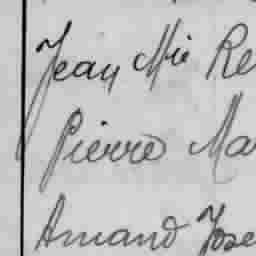 Jean Mie Re
Pierre Ma
Amand Jose